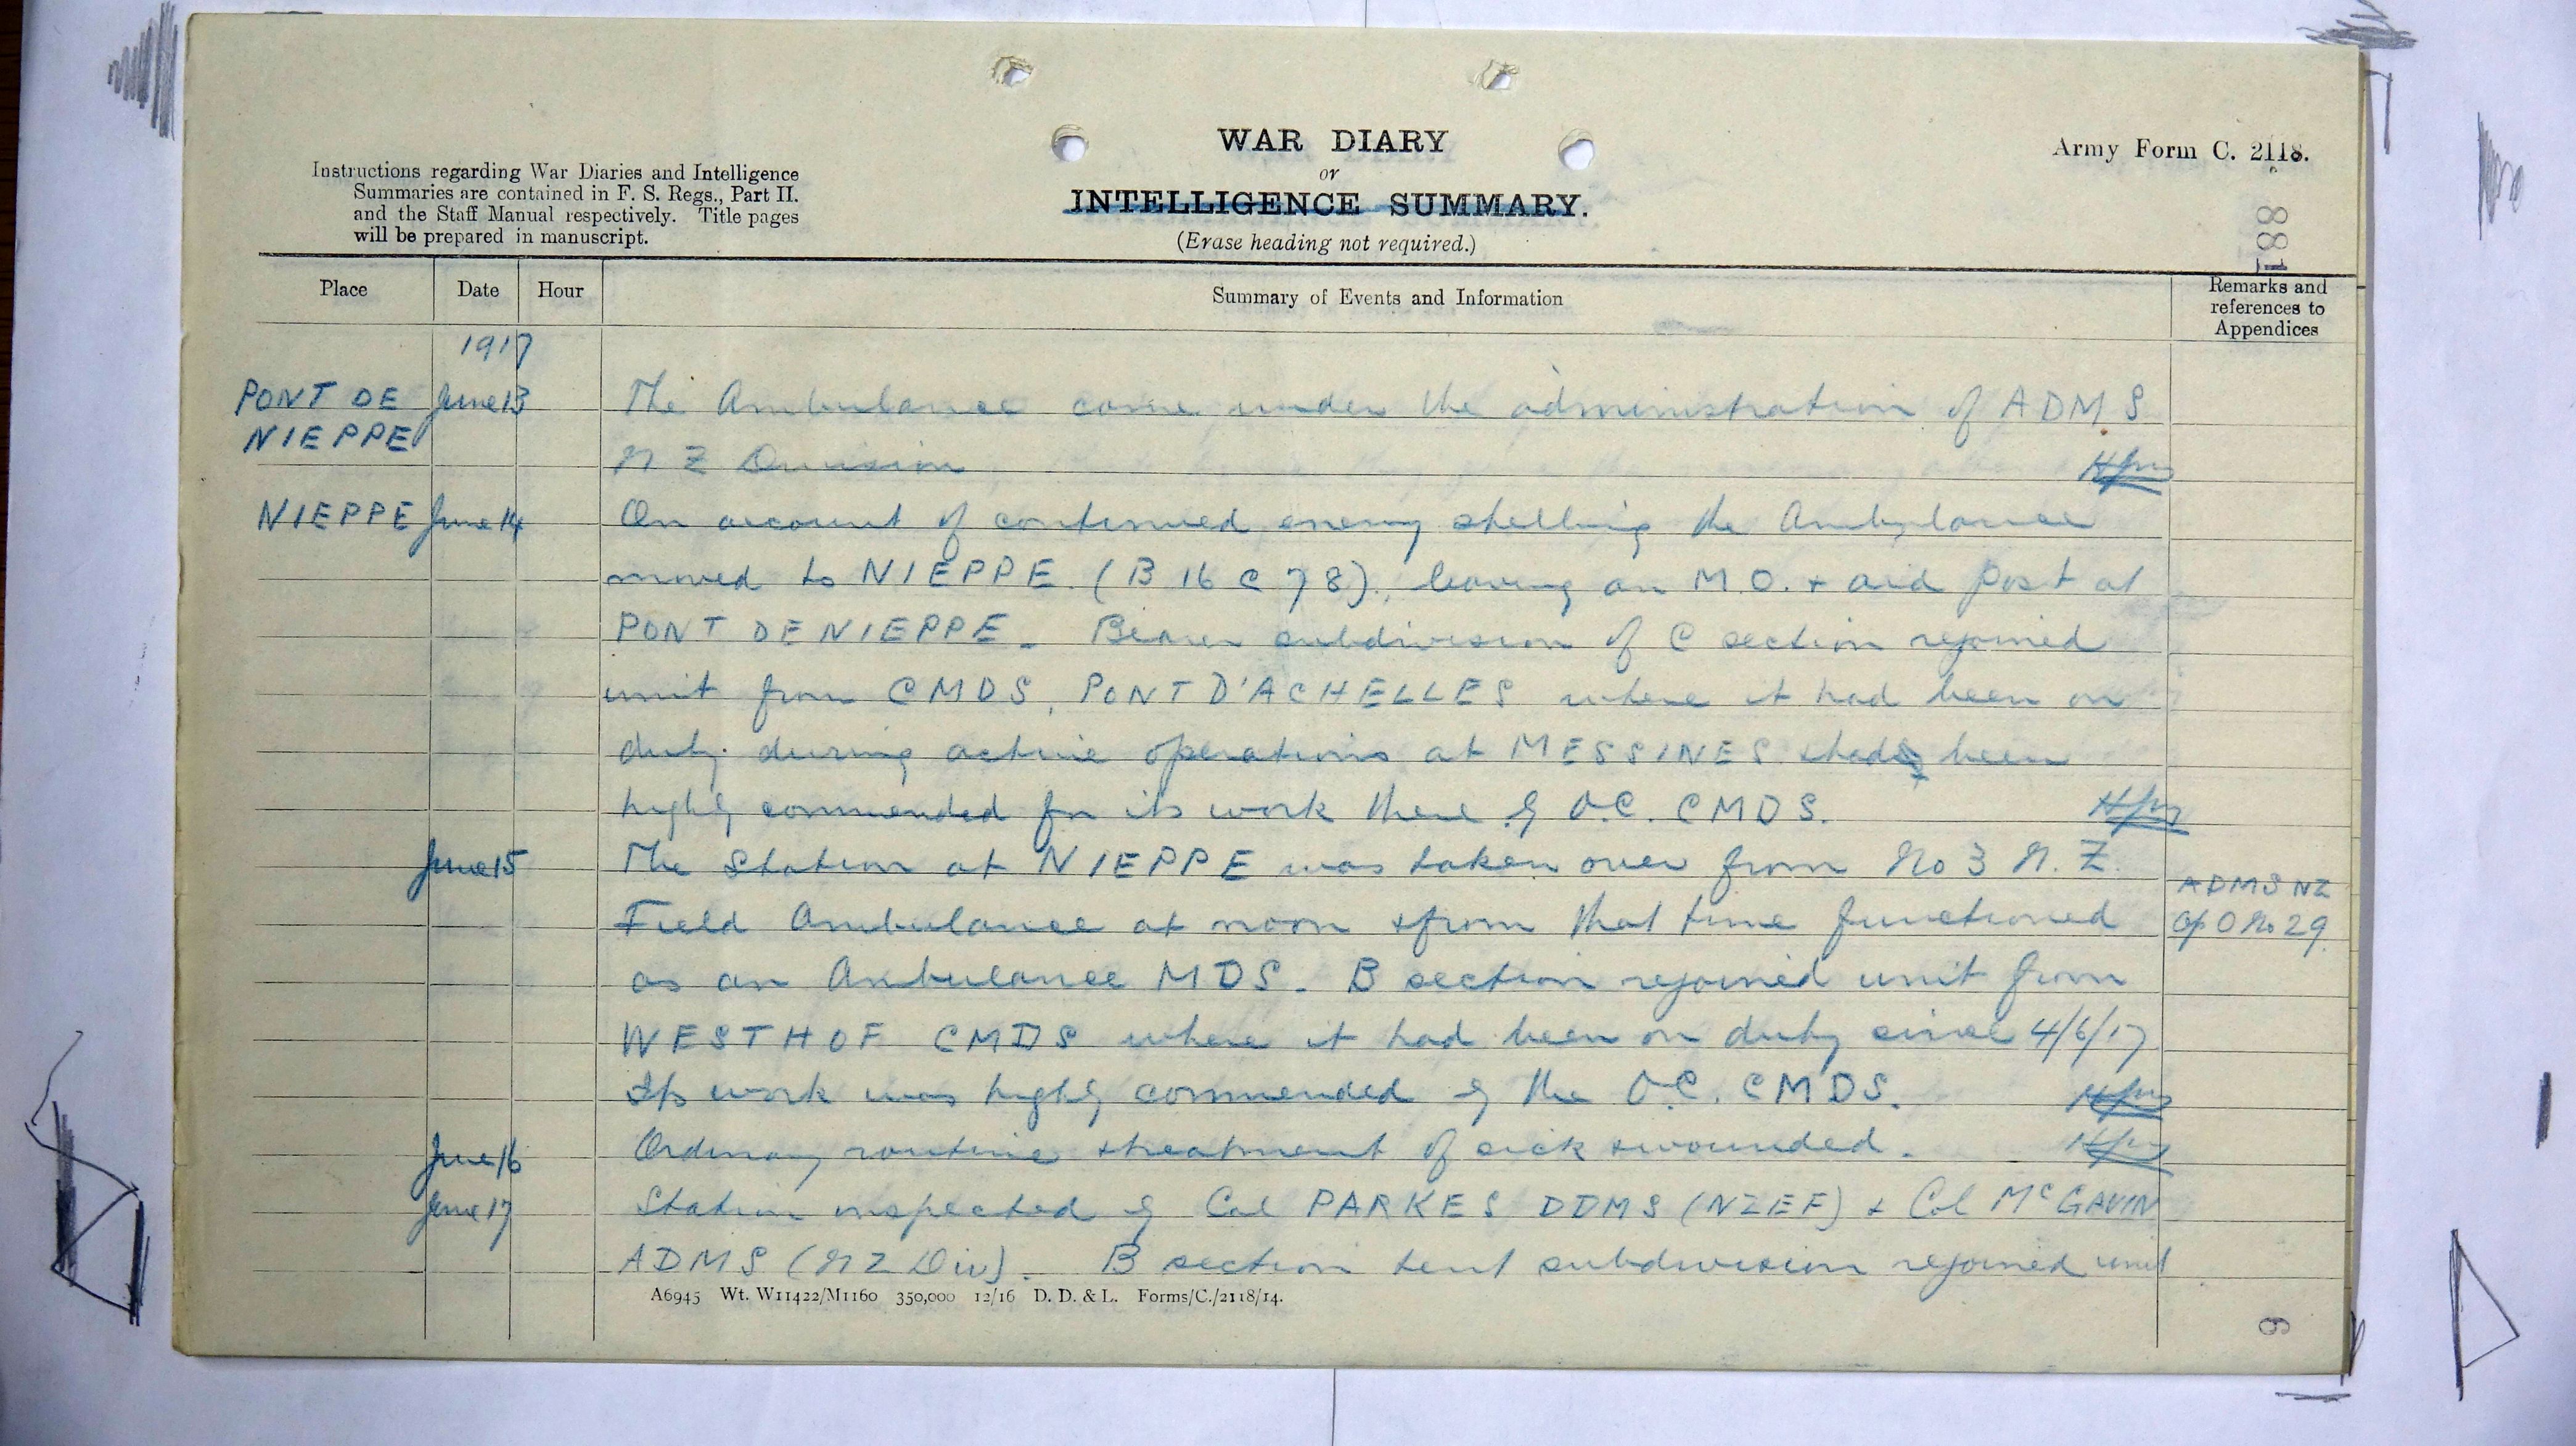 WAR DIARY
or
INTELLIGENCE SUMMARY.
(Erase heading not required.)
Army Form C. 2118.
Instructions regarding War Diaries and Intelligence
Summaries are contained in F. S. Regs., Part II.
and the Staff Manual respectively. Title pages
will be prepared in manuscript.
188
Place Date Hour Summary of Events and Information Remarks and
references to
Appendices
1917
PONT DE June 13 The Ambulance came under the administration of ADMS
NIEPPE
N Z Division
NIEPPE June 14 On account of continued enemy shelling the Ambulance
moved to NIEPPE (B 16 c 7 8), leaving an M.O. + aid post at
PONT DE NIEPPE. Bearer subdivision of C section rejoined
unit from CMDS, PONT D'ACHELLES where it had been on
duty during active operations at MESSINES + had been
highly commended for its work there by O.C. CMDS.
June 15 The Station at NIEPPE was taken over from No 3 N.Z.
ADMS NZ
Field Ambulance at noon + from that time functioned
Op O No 29.
as an Ambulance MDS. B section rejoined unit from
WESTHOF CMDS where it had been on duty since 4/6/17
Its work was highly commended by the O.C. CMDS.
June 16 Ordinary routine + treatment of sick + wounded.
June 17 Station inspected by Col PARKES DDMS (NZEF) + Col McGAVIN
ADMS (NZ Div). B section tent subdivision rejoined unit
A6945 Wt. W11422/M1160 350,000 12/16 D. D. & L. Forms/C./2118/14.
9